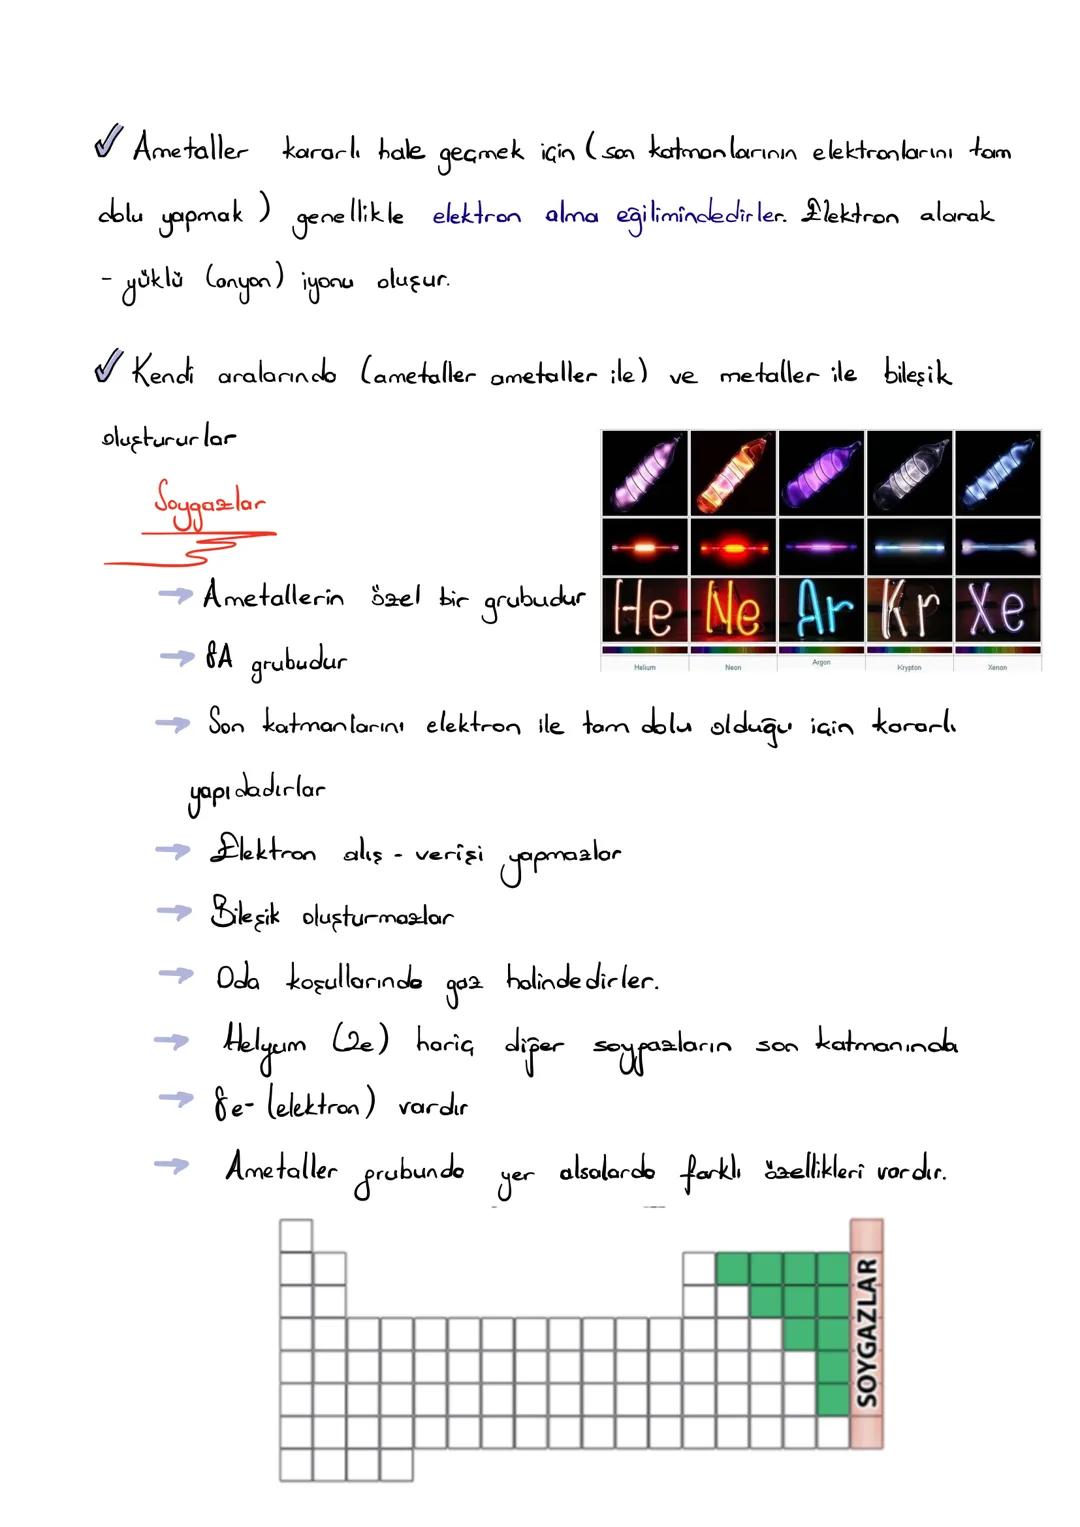 Ametaller kararlı hale geçmek için (son katmanlarının elektronlarını tam
dolu yapmak) genellikle elektron alma eğilimindedirler. Elektron alarak
- yüklü (anyon) iyonu oluşur.
Kendi aralarında (ametaller ametaller ile) ve metaller ile bileşik
oluştururlar
Soygazlar
→ Ametallerin özel bir grubudur
→ 8A grubudur
→ Son katmanlarını elektron ile tam dolu olduğu için kararlı
yapıdadırlar
→ Elektron alış - verişi yapmazlar
→ Bileşik oluşturmazlar
→ Oda koşullarında gaz halindedirler.
→ Helyum (2e) hariç diğer soygazların son katmanında
→ 8e- (elektron) vardır
→ Ametaller grubunda yer alsalarda farklı özellikleri vardır.
He Ne Ar Kr Xe
Helium Neon Argon Krypton Xenon
SOYGAZLAR